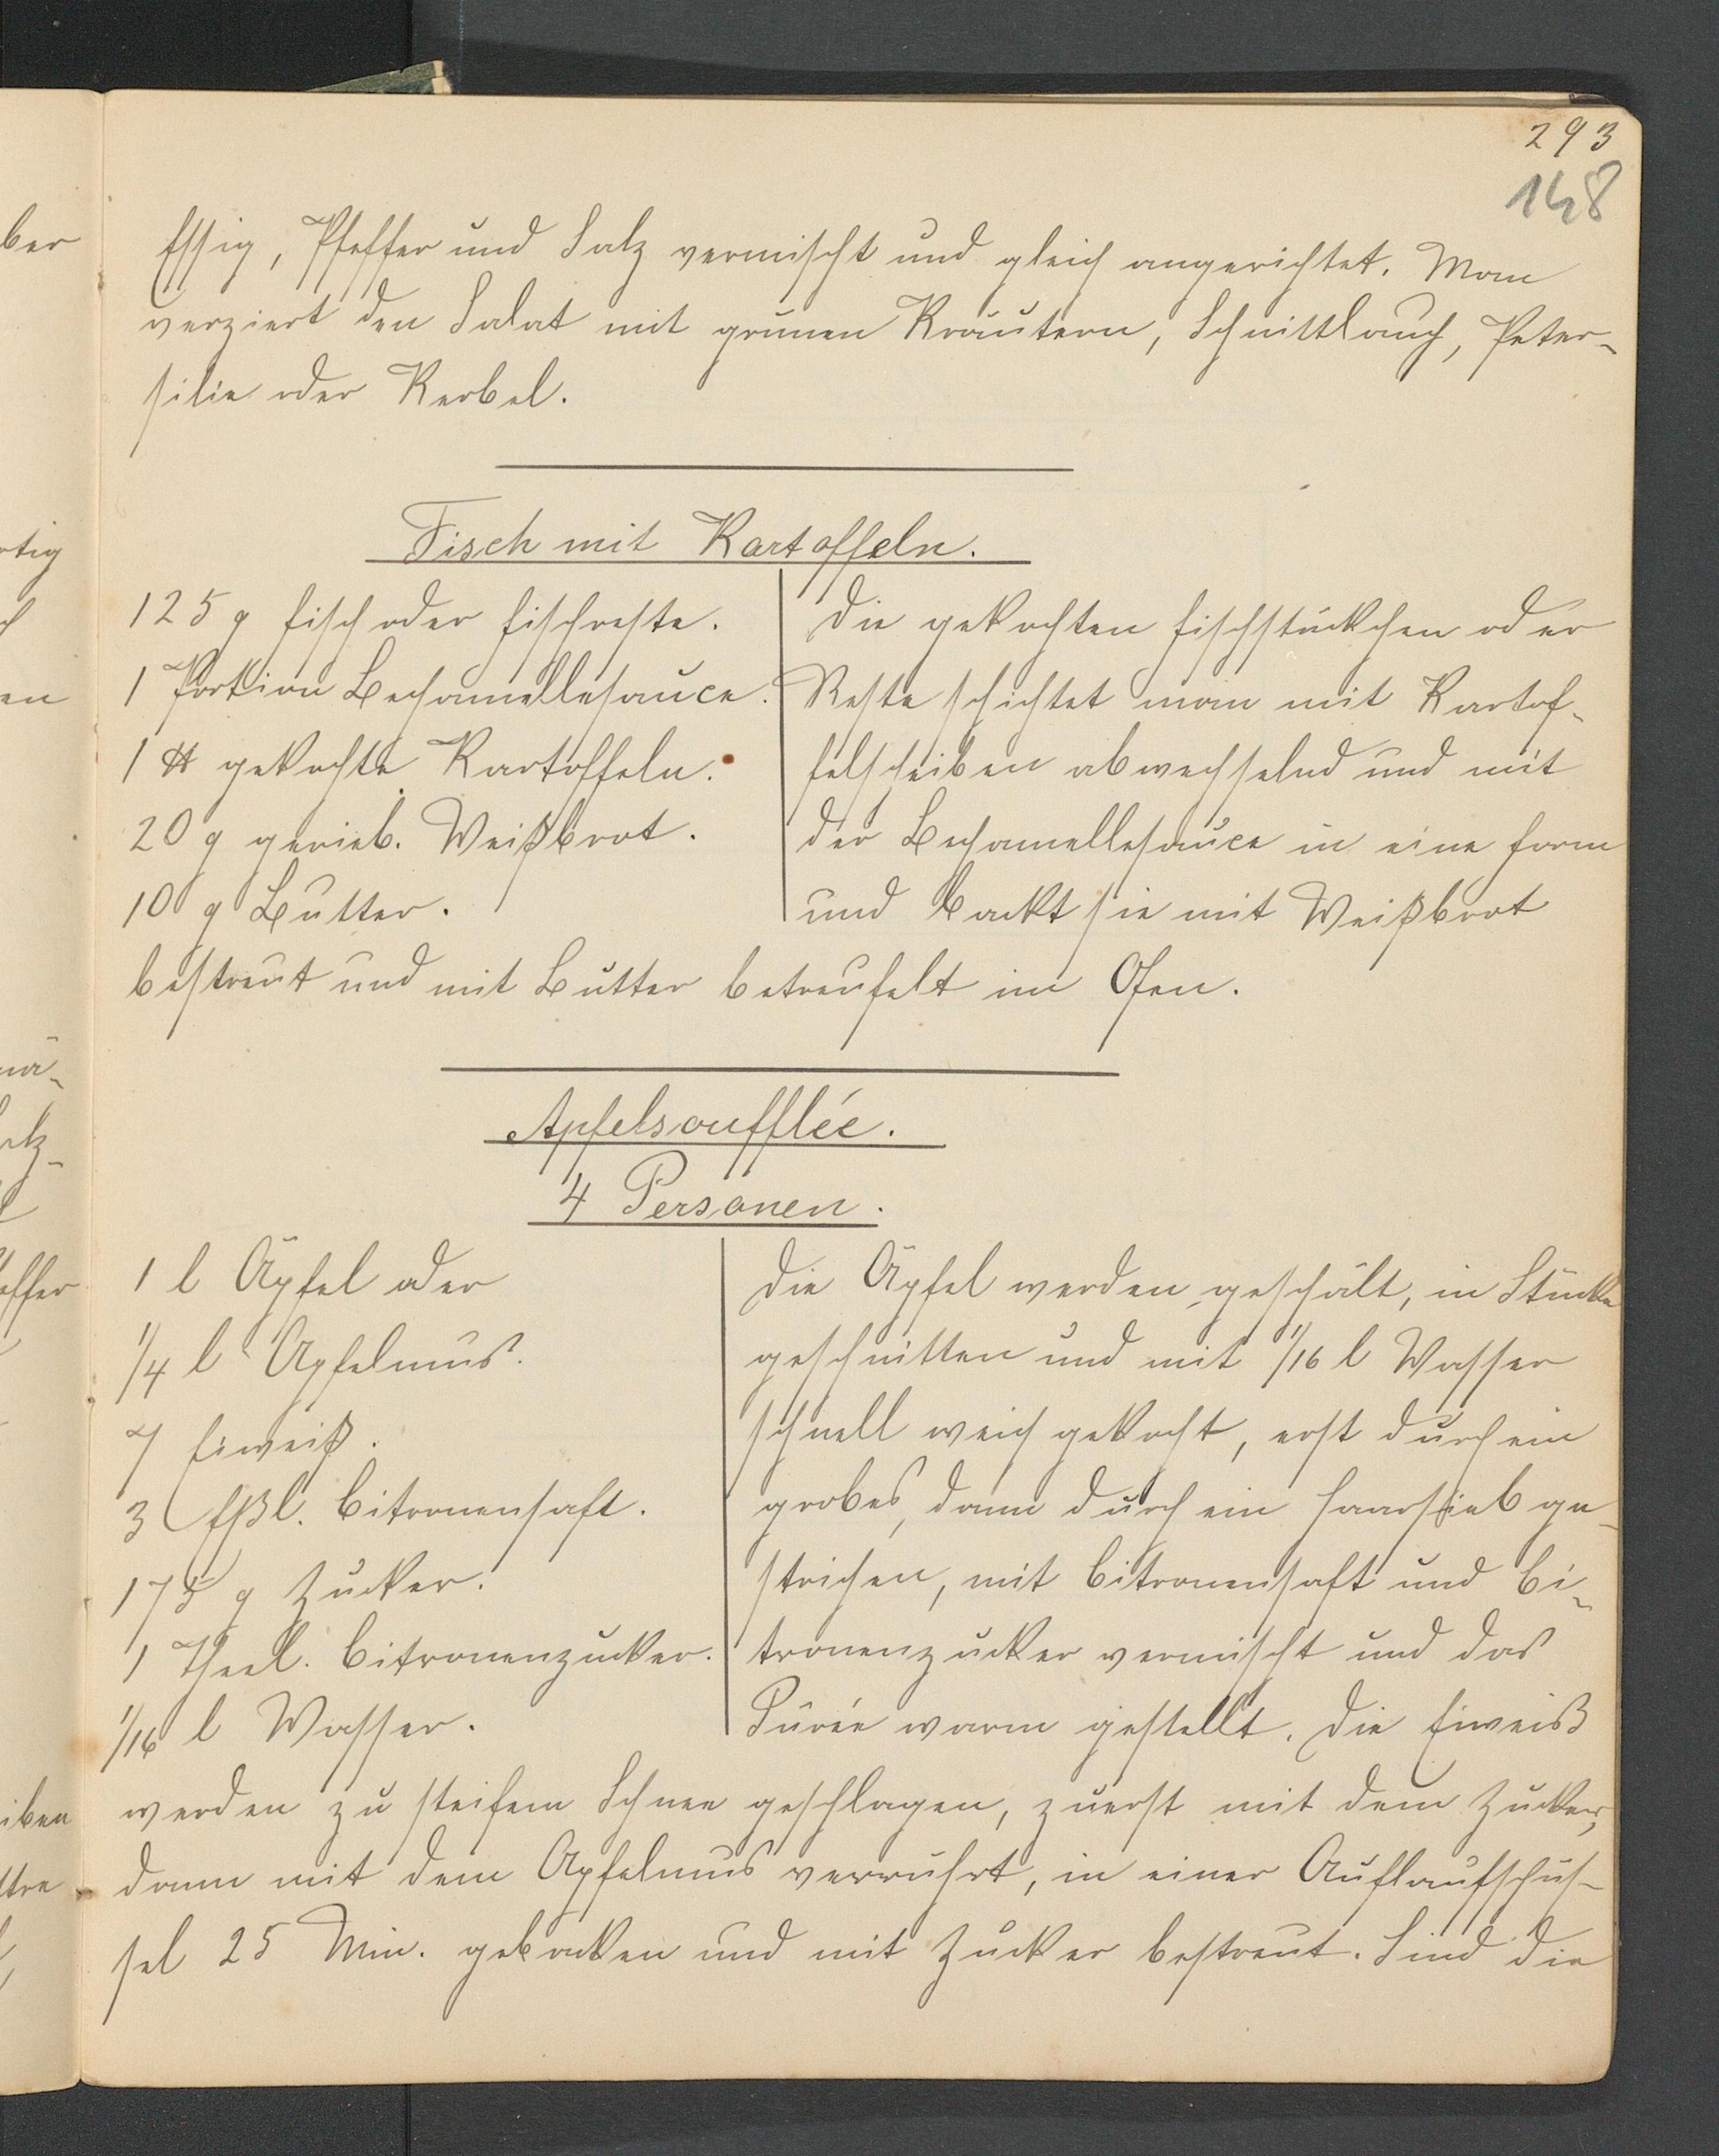 293
148
Essig, Pfeffer und Salz vermischt und gleich angerichtet. Man
verziert den Salat mit grünen Kräutern, Schnittlauch, Peter-
silie oder Kerbel.
Fisch mit Kartoffeln.
125 g Fisch oder Fischreste.
1 Portion Bechamellesauce.
1 ℔ gekochte Kartoffeln.
20 g gerieb. Weißbrot.
10 g Butter.
Die gekochten Fischstückchen oder
Reste schichtet man mit Kartof-
felscheiben abwechselnd und mit
der Bechamellesauce in eine Form
und backt sie mit Weißbrot
bestreut und mit Butter beträufelt im Ofen.
Apfelsoufflée.
4 Personen.
1 l Äpfel oder
1/4 l Apfelmus.
7 Eiweiß.
3 Eßl. Citronensaft.
175 g Zucker.
1 Theel. Citronenzucker.
1/16 l Wasser.
Die Äpfel werden geschält, in Stücke
geschnitten und mit 1/16 l Wasser
schnell weich gekocht, erst durch ein
grobes, dann durch ein Haarsieb ge-
strichen, mit Citronensaft und Ci-
tronenzucker vermischt und das
Pürée warm gestellt. Die Eiweiß
werden zu steifem Schnee geschlagen, zuerst mit dem Zucker,
dann mit dem Apfelmus verrührt, in einer Auflaufschüs-
sel 25 Min. gebacken und mit Zucker bestreut. Sind die